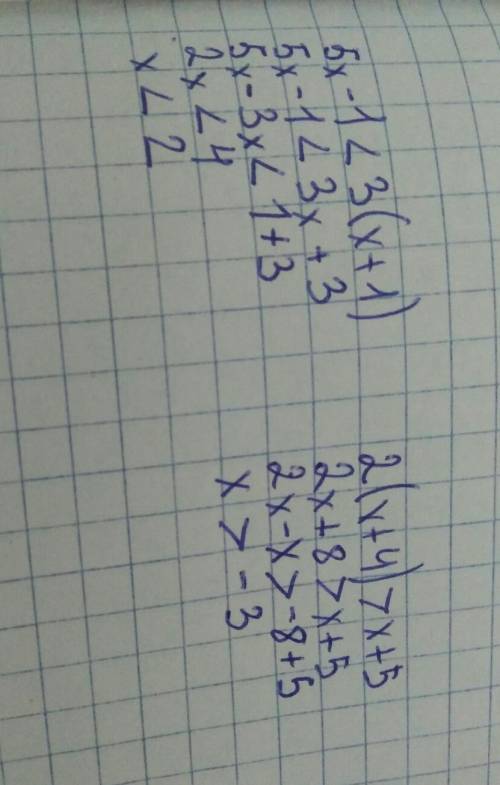 5x-1<3(x+1)
5x-1<3x+3
5x-3x<1+3
2x<4
x<2
2(x+4)>x+5
2x+8>x+5
2x-x>-8+5
x>-3